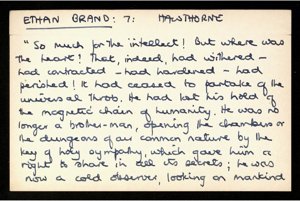 ETHAN BRAND: 7: HAWTHORNE
"So much for the intellect! But where was
the heart? That, indeed, had withered –
had contracted – had hardened – had
perished! It had ceased to partake of the
universal throb. He had lost his hold of
the magnetic chain of humanity. He was no
longer a brother-man, opening the chambers or
the dungeons of our common nature by the
key of holy sympathy, which gave him a
right to share in all its secrets; he was
now a cold observer, looking on mankind